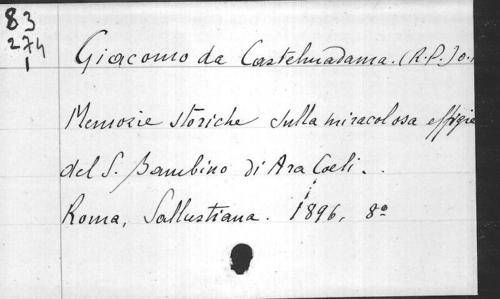 83
274
1
Giacomo da Castelmadama. (R.P.) o.
Memorie storiche sulla miracolosa effigie
del S. Bambino di Ara Coeli.
Roma, Sallustiana. 1896, 8º